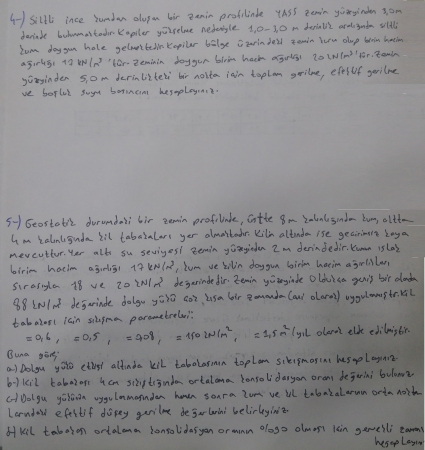 4-) Siltli ince kumdan oluşan bir zemin profilinde YASS zemin yüzeyinden 3,0m
derinde bulunmaktadır. Kapiler yükselme nedeniyle 1,0-3,0 m derinlik aralığında siltli
kum doygun hale gelmektedir. Kapiler bölge üzerindeki zemin kuru olup birim hacim
ağırlığı 17 kN/m³ 'tür. Zeminin doygun birim hacim ağırlığı 20 kN/m³'tür. Zemin
yüzeyinden 5,0 m derinlikteki bir nokta için toplam gerilme, efektif gerilme
ve boşluk suyu basıncını hesaplayınız.
5-) Geostatik durumdaki bir zemin profilinde, üstte 8m kalınlığında kum, altta
4m kalınlığında kil tabakaları yer almaktadır. Kilin altında ise geçirimsiz kaya
mevcuttur. Yer altı su seviyesi zemin yüzeyinden 2m derindedir. Kumun ıslak
birim hacim ağırlığı 17 kN/m³, kum ve kilin doygun birim hacim ağırlıkları
sırasıyla 18 ve 20 kN/m³ değerindedir. Zemin yüzeyinde oldukça geniş bir alanda
88 kN/m² değerinde dolgu yükü çok kısa bir zamanda (ani olarak) uygulanmıştır. Kil
tabakası için sıkışma parametreleri:
=0,6 , =0,5 , =0,08 , =150 kN/m² , =1,5 m²/yıl olarak elde edilmiştir.
Buna göre;
a-) Dolgu yükü etkisi altında kil tabakasının toplam sıkışmasını hesaplayınız
b-) Kil tabakası 4cm sıkıştığında ortalama konsolidasyon oranı değerini bulunuz.
c-) Dolgu yükünün uygulanmasından hemen sonra kum ve kil tabakalarının orta nokta
larındaki efektif düşey gerilme değerlerini belirleyiniz
d-) Kil tabakası ortalama konsolidasyon oranının %90 olması için gerekli zamanı
hesaplayın